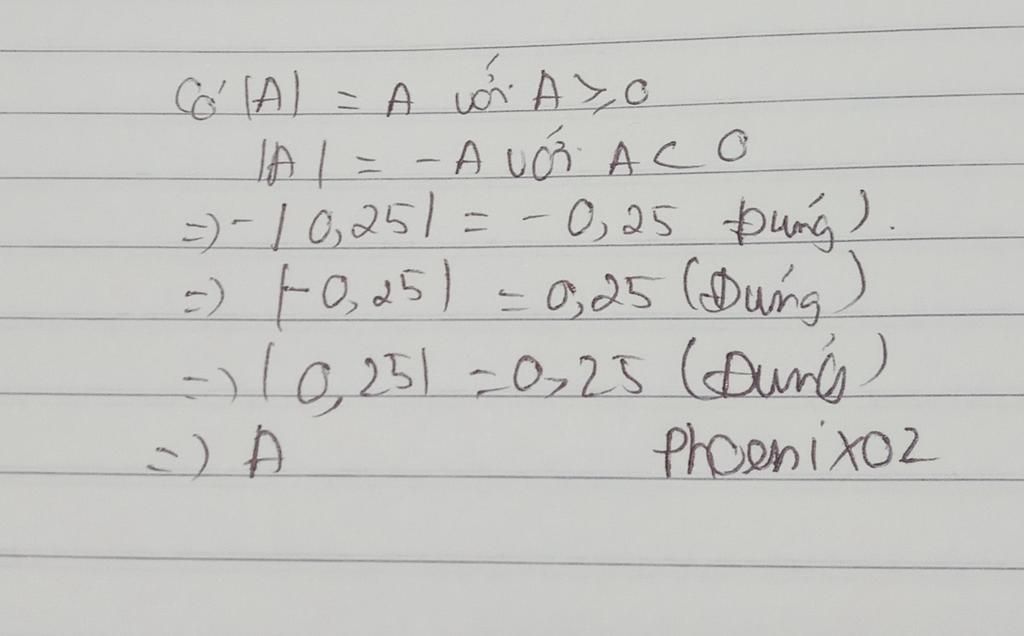 Có |A| = A với A ≥ 0
|A| = -A với A < 0
=> -|0,25| = -0,25 Đúng).
=> |-0,25| = 0,25 (Đúng)
=> |0,25| = 0,25 (Đúng)
=> A
Phoenix02